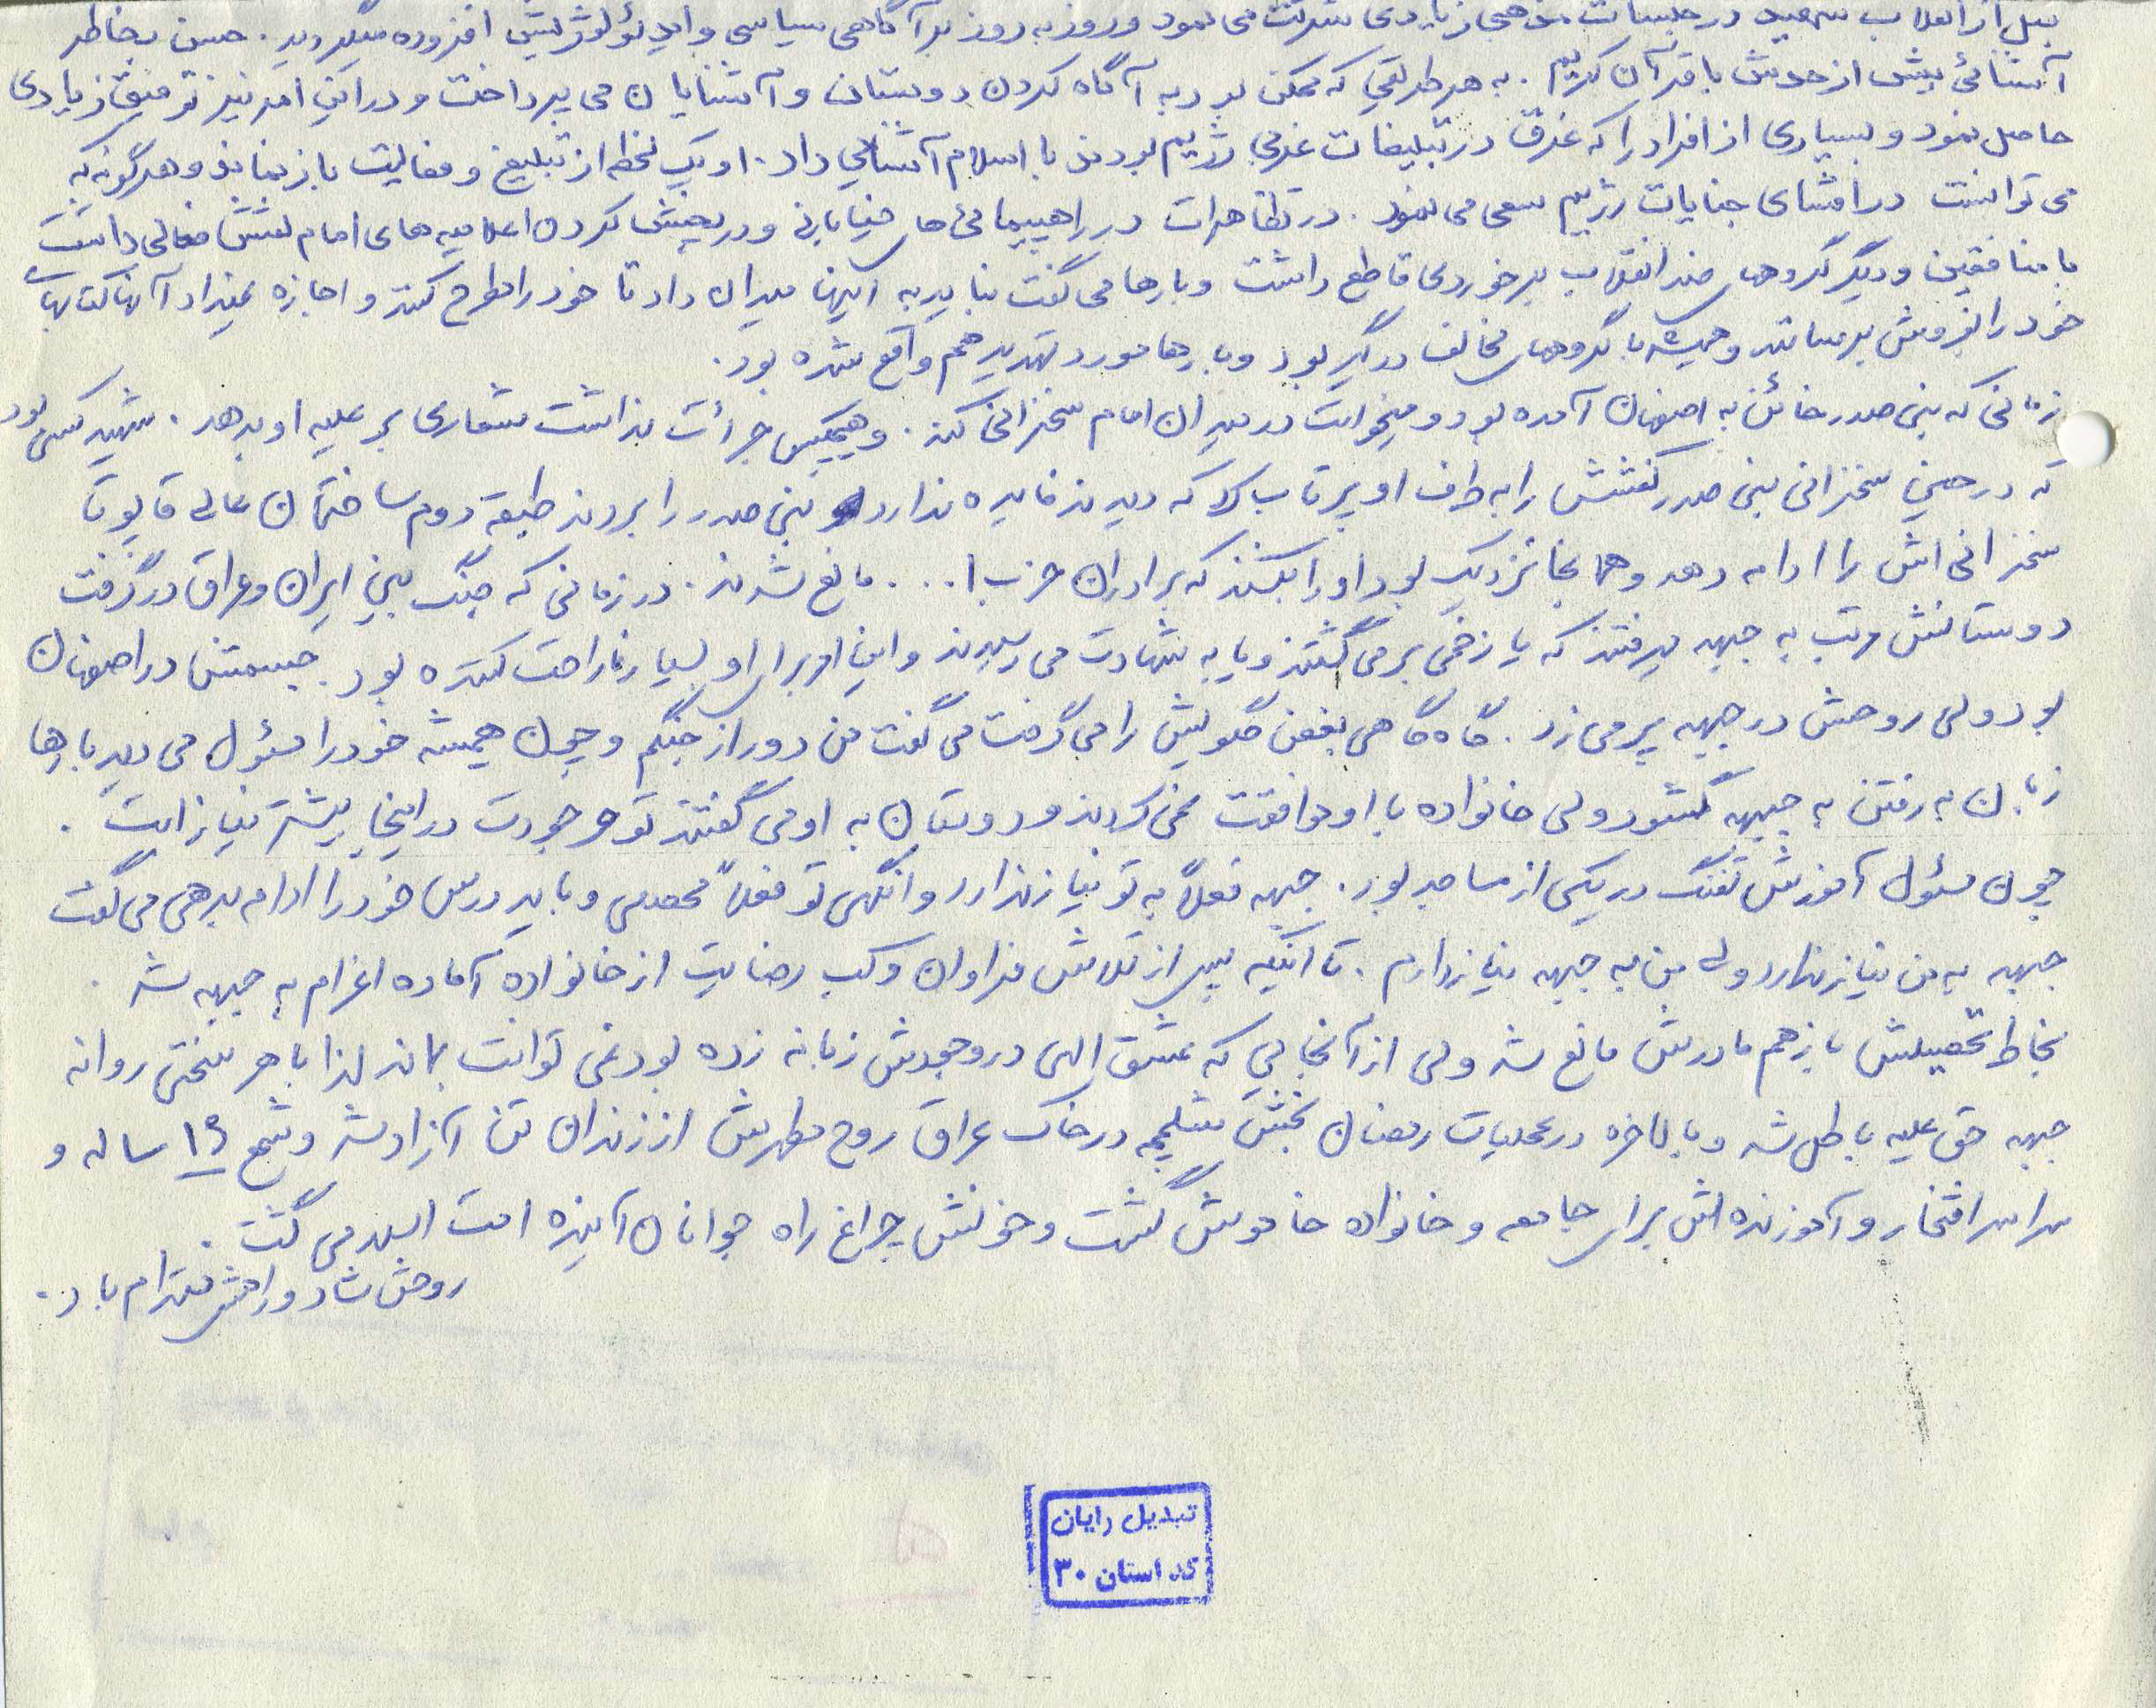 قبل از انقلاب شهید در جلسات مذهبی زیادی شرکت می نمود و روز به روز بر آگاهی سیاسی و ایدئولوژیش افزوده میگردید. حسن بخاطر
آشنائی بیش از حدش با قرآن کریم. به هر طریقی که ممکن بود به آگاه کردن دوستان و آشنایان می پرداخت و در این امر نیز توفیق زیادی
حاصل نمود و بسیاری از افراد را که غرق در تبلیغات غربی رژیم بودند با اسلام آشنایی داد. او یک لحظه از تبلیغ و فعالیت باز نماند و هرگونه که
می توانست در افشای جنایات رژیم سعی می نمود. در تظاهرات در راهپیمائی های خیابانی و در پخش کردن اعلامیه های امام نقش فعالی داشت
با منافقین و دیگر گروههای ضد انقلاب برخوردی قاطع داشت و بارها می گفت نباید به اینها میدان داد تا خود را مطرح کنند و اجازه نمیداد آنها کتابهای
خود را بفروش برسانند و همیشه با گروههای مخالف درگیر بود و بارها مورد تهدید هم واقع شده بود.
زمانی که بنی صدر خائن به اصفهان آمده بود و میخواست در میدان امام سخنرانی کند. و هیچکس جرأت نداشت شعاری بر علیه او بدهد. شهید کسی بود
که در حین سخنرانی بنی صدر کفشش را به طرف او پرتاب کرد که دیدند فایده ندارد بنی صدر را بردند طبقه دوم ساختمان عالی قاپو تا
سخنرانی اش را ادامه دهد و همانجا نزدیک بود او را بکشند که برادران حزب ا... مانع شدند. در زمانی که جنگ بین ایران و عراق در گرفت
دوستانش مرتب به جبهه میرفتند که یا زخمی برمی گشتند و یا به شهادت می رسیدند و این امر برای او بسیار ناراحت کننده بود. جسمش در اصفهان
بود ولی روحش در جبهه پر می زد. گاه گاهی بغض گلویش را می گرفت می گفت من دور از جنگم و چون همیشه خود را مسئول می دید بارها
زبان به رفتن به جبهه گشود ولی خانواده با او موافقت نمی کردند و دوستان به او می گفتند تو وجودت در اینجا بیشتر نیاز است.
چون مسئول آموزش تفنگ در یکی از مساجد بود. جبهه فعلاً به تو نیاز ندارد وانگهی تو فعلاً محصلی و باید درس خود را ادامه بدهی می گفت
جبهه به من نیاز ندارد ولی من به جبهه نیاز دارم. تا اینکه پس از تلاش فراوان و کسب رضایت از خانواده آماده اعزام به جبهه شد.
بخاطر تحصیلش باز هم مادرش مانع شد ولی از آنجایی که عشق الهی در وجودش زبانه زده بود نمی توانست بماند لذا با هر سختی روانه
جبهه حق علیه باطل شد و بالاخره در عملیات رمضان بخش شلمچه در خاک عراق روح مطهرش از زندان تن آزاد شد و شمع ۱۶ ساله و
سراسر افتخار و آموزنده اش برای جامعه و خانواده خاموش گشت و خونش چراغ راه جوانان آینده امت اسلامی گشت.
روحش شاد و راهش مستدام باد.
تبدیل رایان
کد استان ۳۰